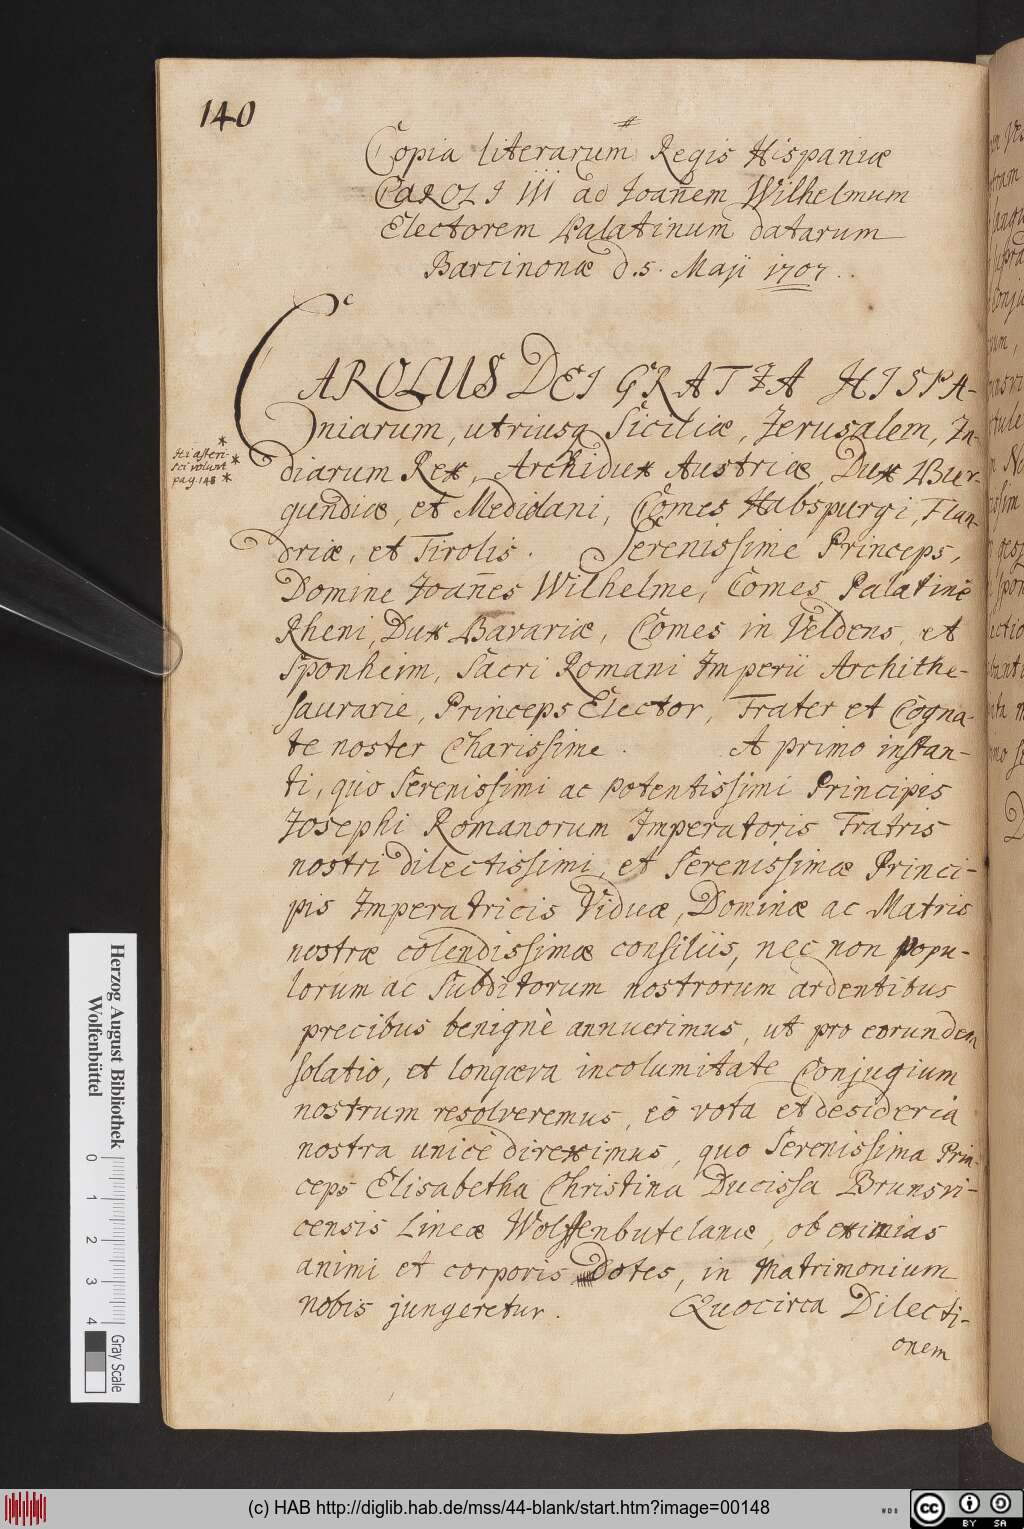 140
Copia literarum Regis Hispaniæ
CAROLI III ad Joan̄em Wilhelmum
Electorem Palatinum datarum
Barcinonæ d. 5. Maji 1707.
CAROLUS DEI GRATIA HISPA-
niarum, utriusq Siciliæ, Jerusalem, In-
diarum Rex, Archidux Austriæ, Dux Bur-
gundiæ, et Mediolani, Comes Habspurgi, Flan-
driæ, et Tirolis. Serenissime Princeps,
Domine Joan̄es Wilhelme, Comes Palatine
Rheni, Dux Bavariæ, Comes in Veldens, et
Sponheim, Sacri Romani Imperii Archithe-
saurarie, Princeps Elector, Frater et Cogna-
te noster Charissime. A primo instan-
ti, quo Serenissimi ac potentissimi Principis
Josephi Romanorum Imperatoris Fratris
nostri dilectissimi, et Serenissimæ Princi-
pis Imperatricis Viduæ, Dominæ ac Matris
nostræ colendissimæ consiliis, nec non popu-
lorum ac Subditorum nostrorum ardentibus
precibus benignè annuerimus, ut pro eorundem
solatio, et longæva incolumitate Conjugium
nostrum resolveremus, eò vota et desideria
nostra unicè direximus, quo Serenissima Prin-
ceps Elisabetha Christina Ducissa Brunsvi-
censis Lineæ Wolffenbutelanæ, ob eximias
animi et corporis Dotes, in Matrimonium
nobis jungeretur. Quocirca Dilecti-
onem
*
Hi asteri- *
sci volunt
pag. 148 *
Herzog August Bibliothek
Wolfenbüttel
0 1 2 3 4
Gray Scale
(c) HAB http://diglib.hab.de/mss/44-blank/start.htm?image=00148
WDB
cc BY SA